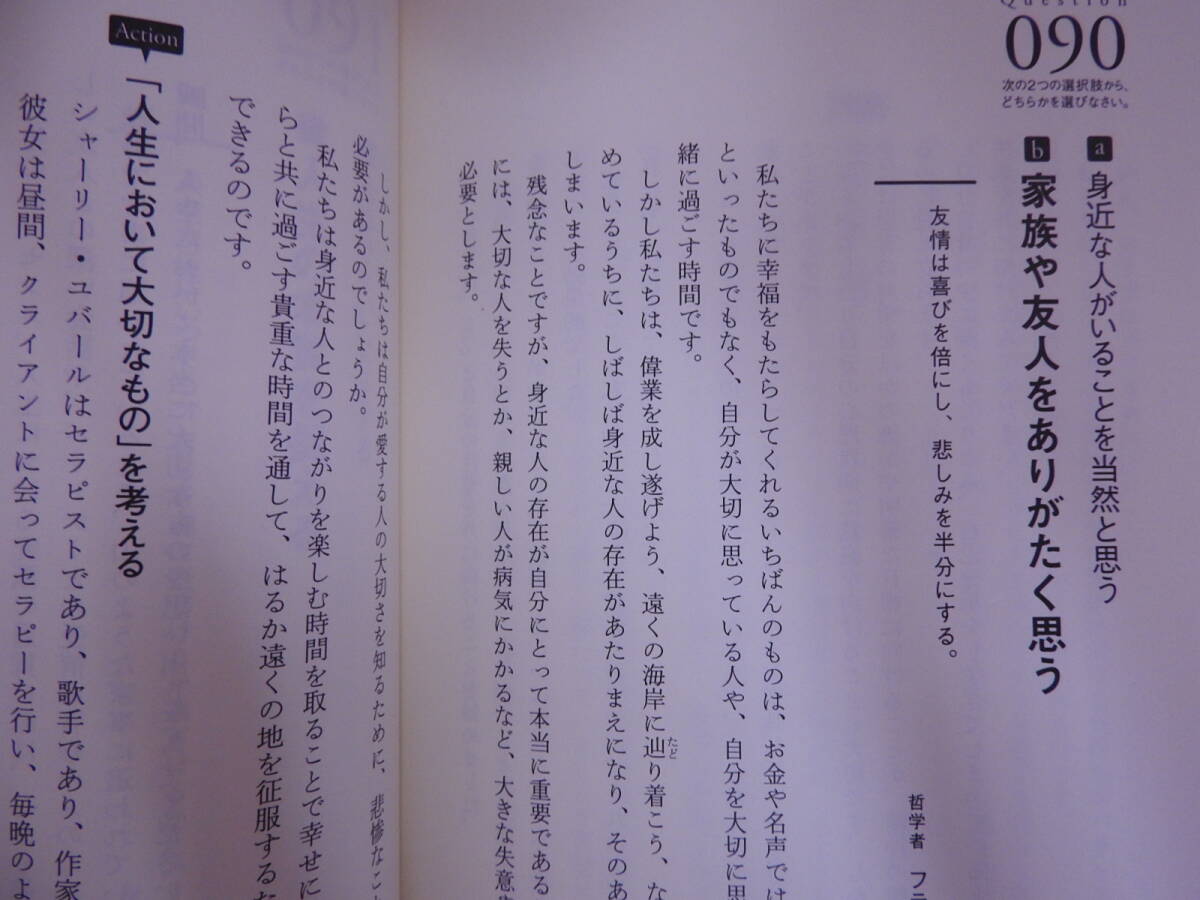 Question
090
次の2つの選択肢から、
どちらかを選びなさい。
a 身近な人がいることを当然と思う
b 家族や友人をありがたく思う
友情は喜びを倍にし、悲しみを半分にする。
哲学者 フラ
私たちに幸福をもたらしてくれるいちばんのものは、お金や名声では
といったものでもなく、自分が大切に思っている人や、自分を大切に思
緒に過ごす時間です。
しかし私たちは、偉業を成し遂げよう、遠くの海岸に辿り着こう、な
たど
めているうちに、しばしば身近な人の存在があたりまえになり、そのあ
しまいます。
残念なことですが、身近な人の存在が自分にとって本当に重要である
には、大切な人を失うとか、親しい人が病気にかかるなど、大きな失意
必要とします。
しかし、私たちは自分が愛する人の大切さを知るために、悲惨なこ
必要があるのでしょうか。
私たちは身近な人とのつながりを楽しむ時間を取ることで幸せに
らと共に過ごす貴重な時間を通して、はるか遠くの地を征服するた
できるのです。
Action
「人生において大切なもの」を考える
シャーリー・ユバールはセラピストであり、歌手であり、作家
彼女は昼間、クライアントに会ってセラピーを行い、毎晩のよ